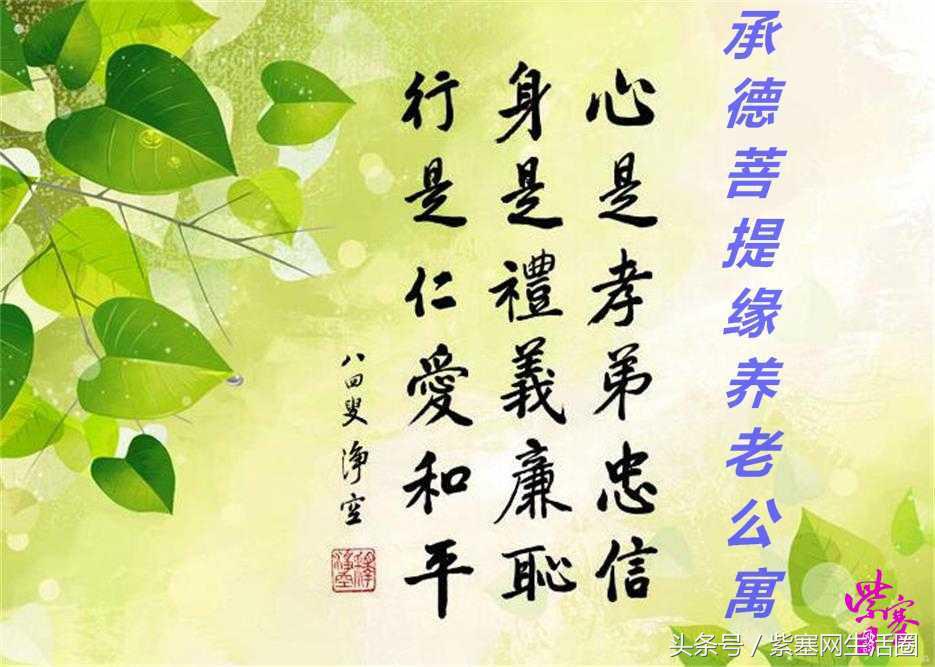 承德菩提缘养老公寓
心是孝弟忠信
身是禮義廉恥
行是仁愛和平
八四叟 淨空
紫塞网
头条号 / 紫塞网生活圈